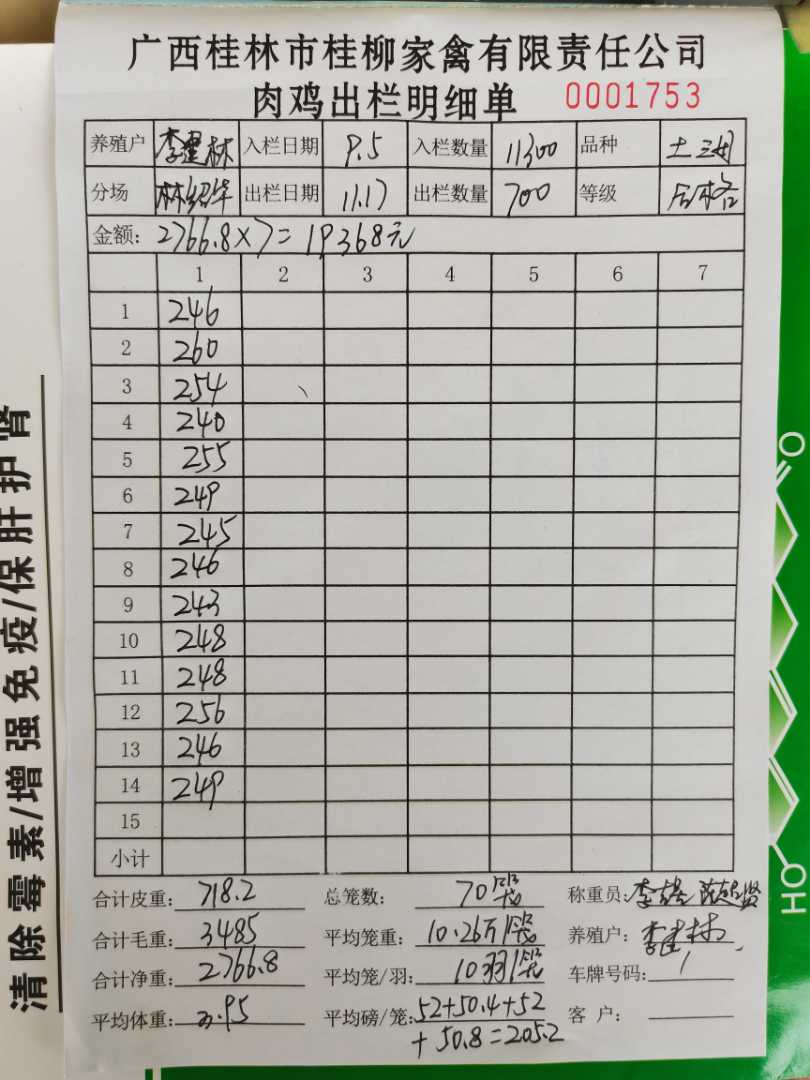 广西桂林市桂柳家禽有限责任公司
肉鸡出栏明细单 0001753
养殖户 李建林 入栏日期 9.5 入栏数量 11300 品种 土
分场 林绍华 出栏日期 11.17 出栏数量 700 等级 合格
金额: 2766.8×7=19368元
1 2 3 4 5 6 7
1 246
2 260
3 254
4 240
5 255
6 249
7 245
8 246
9 243
10 248
11 248
12 256
13 246
14 249
15
小计
合计皮重: 718.2 总笼数: 70 称重员: 李
合计毛重: 3485 平均笼重: 10.26 养殖户: 李建林
合计净重: 2766.8 平均笼/羽: 10羽 车牌号码: /
平均体重: 3.95 平均磅/笼: 52+50.4+52 客户:
+50.8=205.2
清除霉素/增强免疫/保肝护肾
O
OH